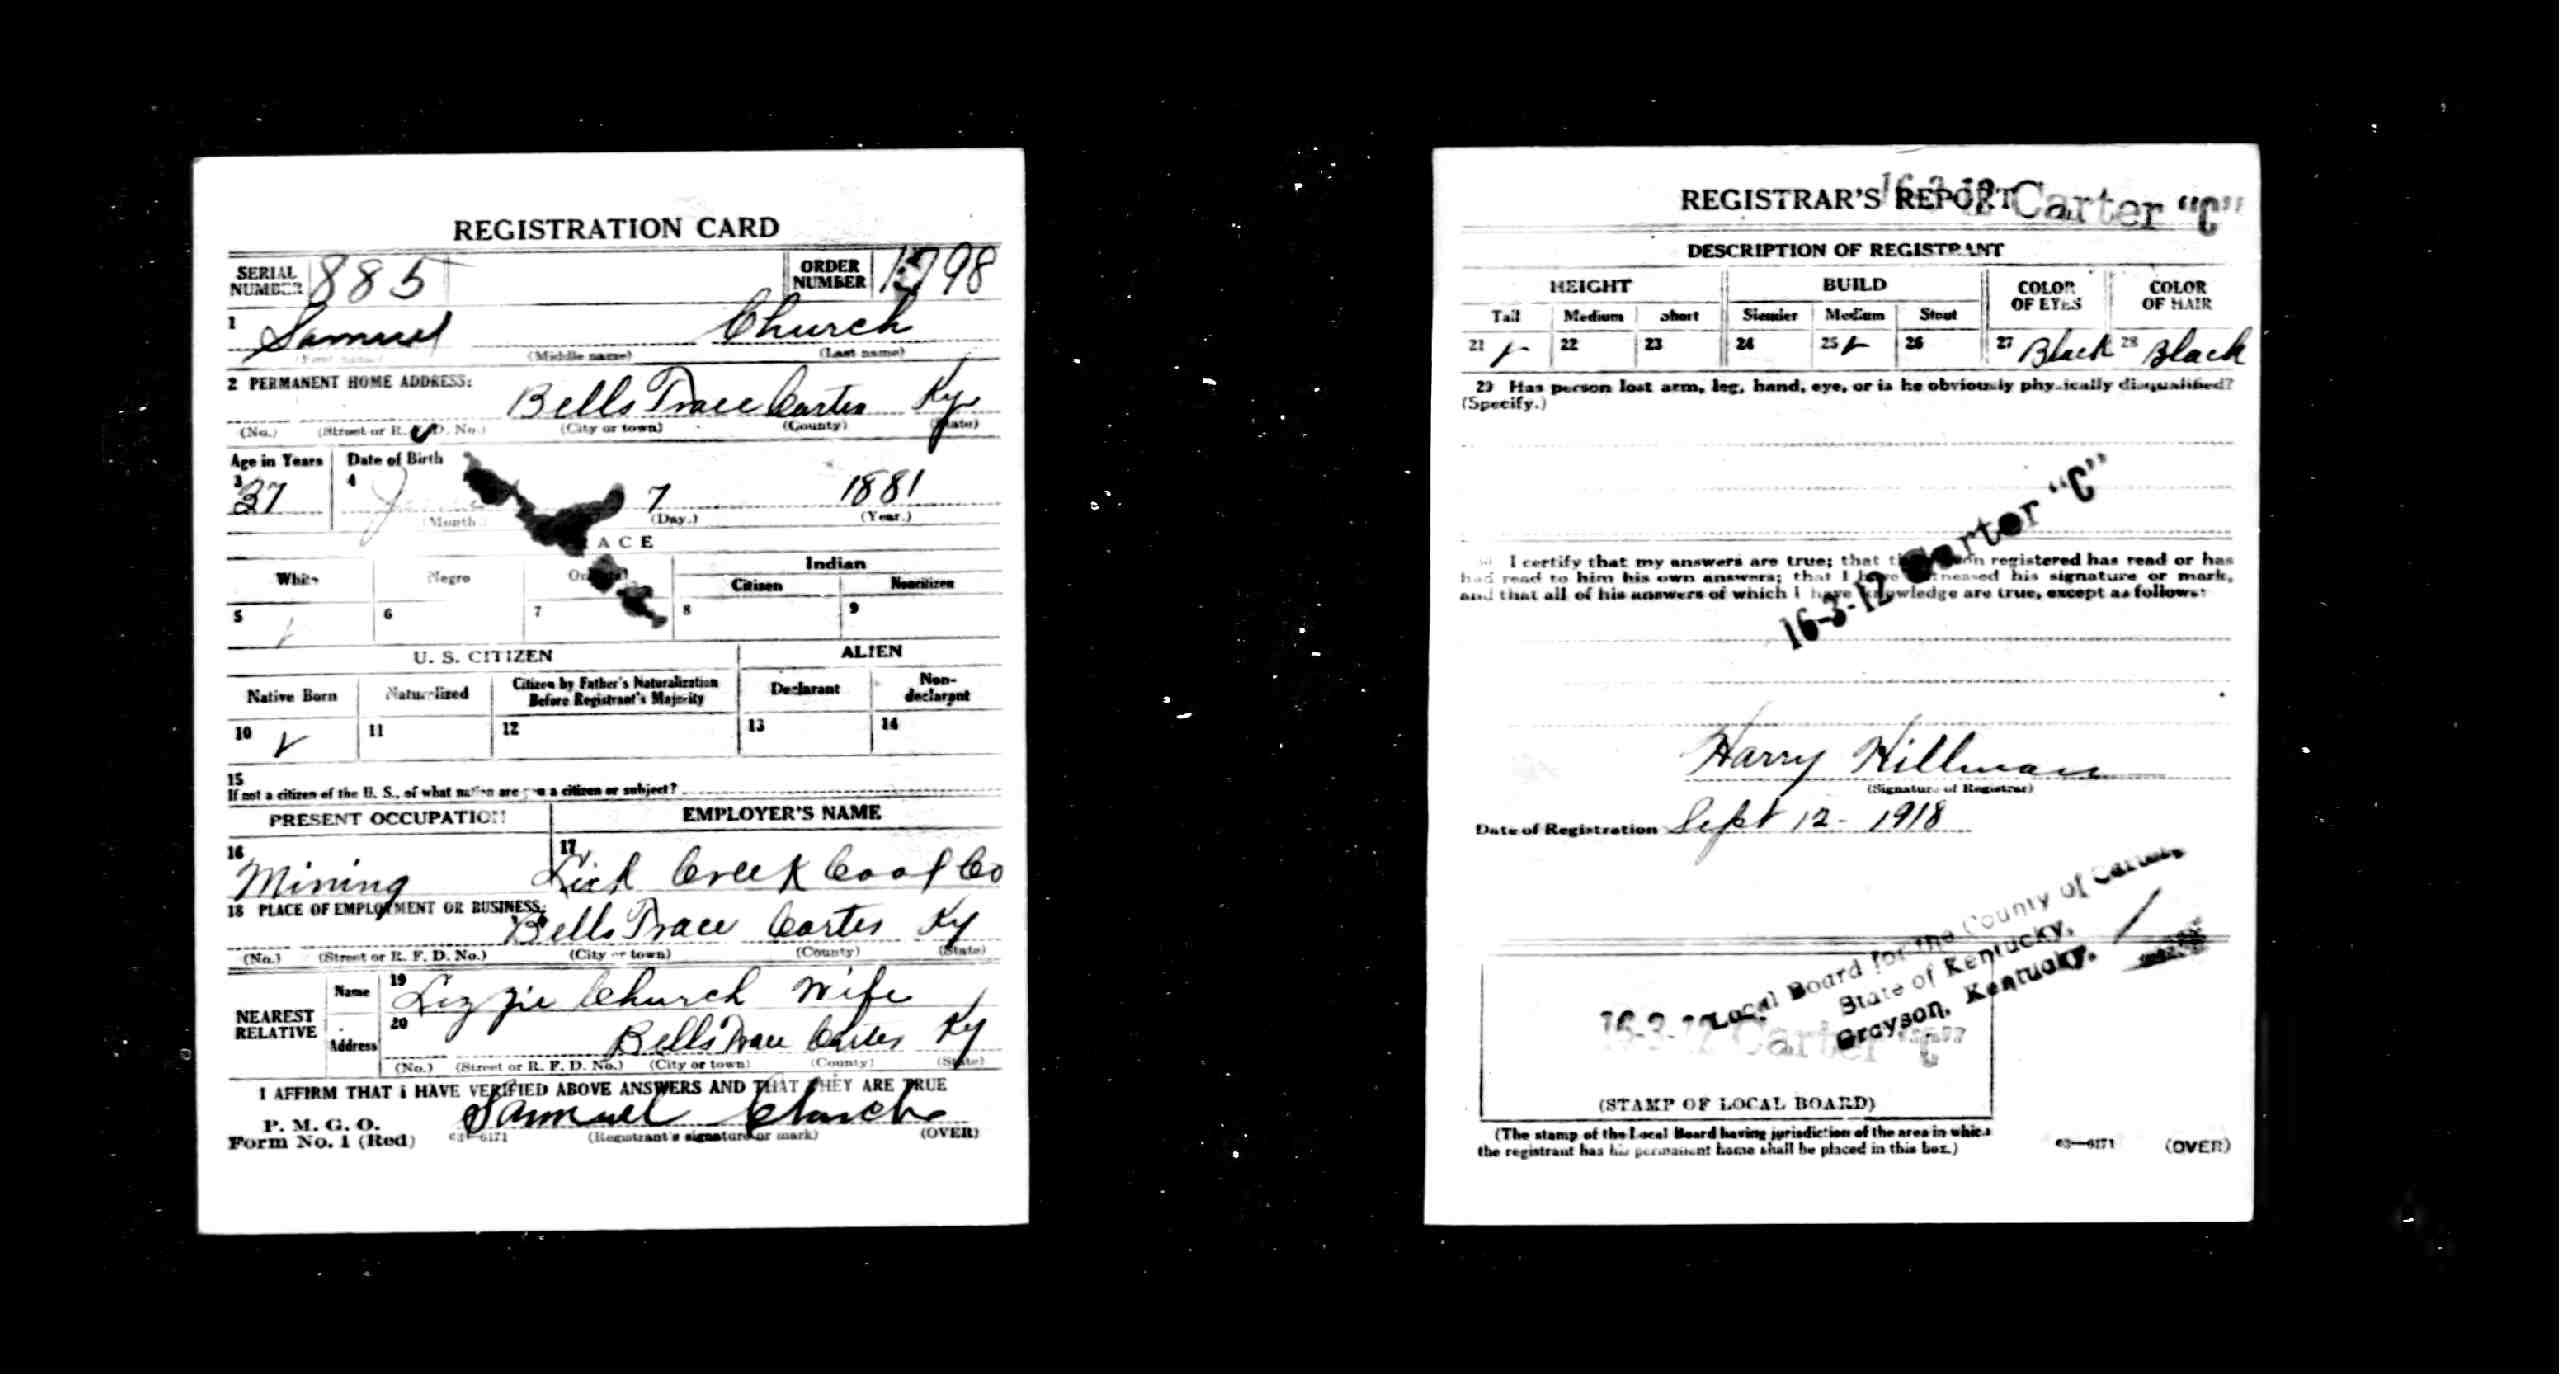 REGISTRATION CARD
SERIAL NUMBER 885 ORDER NUMBER 1798
1 Samuel Church
(First name) (Middle name) (Last name)
2 PERMANENT HOME ADDRESS:
Bells Trace Carter Ky
(No.) (Street or R. F. D. No.) (City or town) (County) (State)
Age in Years Date of Birth
3 37 4 7 1881
(Month.) (Day.) (Year.)
RACE
White Negro Oriental Indian
Citizen Noncitizen
5 ✓ 6 7 8 9
U. S. CITIZEN ALIEN
Native Born Naturalized Citizen by Father's Naturalization Before Registrant's Majority Declarant Non-declarant
10 ✓ 11 12 13 14
15
If not a citizen of the U. S., of what nation are you a citizen or subject?
PRESENT OCCUPATION EMPLOYER'S NAME
16 Mining 17 Lick Creek Coal Co
18 PLACE OF EMPLOYMENT OR BUSINESS:
Bells Trace Carter Ky
(No.) (Street or R. F. D. No.) (City or town) (County) (State)
NEAREST RELATIVE
Name 19 Lizzie Church Wife
Address 20 Bells Trace Carter Ky
(No.) (Street or R. F. D. No.) (City or town) (County) (State)
I AFFIRM THAT I HAVE VERIFIED ABOVE ANSWERS AND THAT THEY ARE TRUE
P. M. G. O.
Form No. 1 (Red) 03—6171 Samuel Church
(Registrant's signature or mark) (OVER)
REGISTRAR'S REPORT
16-3-12 Carter "C"
DESCRIPTION OF REGISTRANT
HEIGHT BUILD COLOR OF EYES COLOR OF HAIR
Tall Medium Short Slender Medium Stout
21 ✓ 22 23 24 25 ✓ 26 27 Black 28 Black
29 Has person lost arm, leg, hand, eye, or is he obviously physically disqualified?
(Specify.)
16-3-12 Carter "C"
30 I certify that my answers are true; that the person registered has read or has
had read to him his own answers; that I have witnessed his signature or mark,
and that all of his answers of which I have knowledge are true, except as follows:
Harry Hillman
(Signature of Registrar)
Date of Registration Sept 12 - 1918
Local Board for the County of Carter,
State of Kentucky,
Grayson, Kentucky.
16-3-12 Carter "C"
(STAMP OF LOCAL BOARD)
(The stamp of the Local Board having jurisdiction of the area in which
the registrant has his permanent home shall be placed in this box.)
03—6171 (OVER)